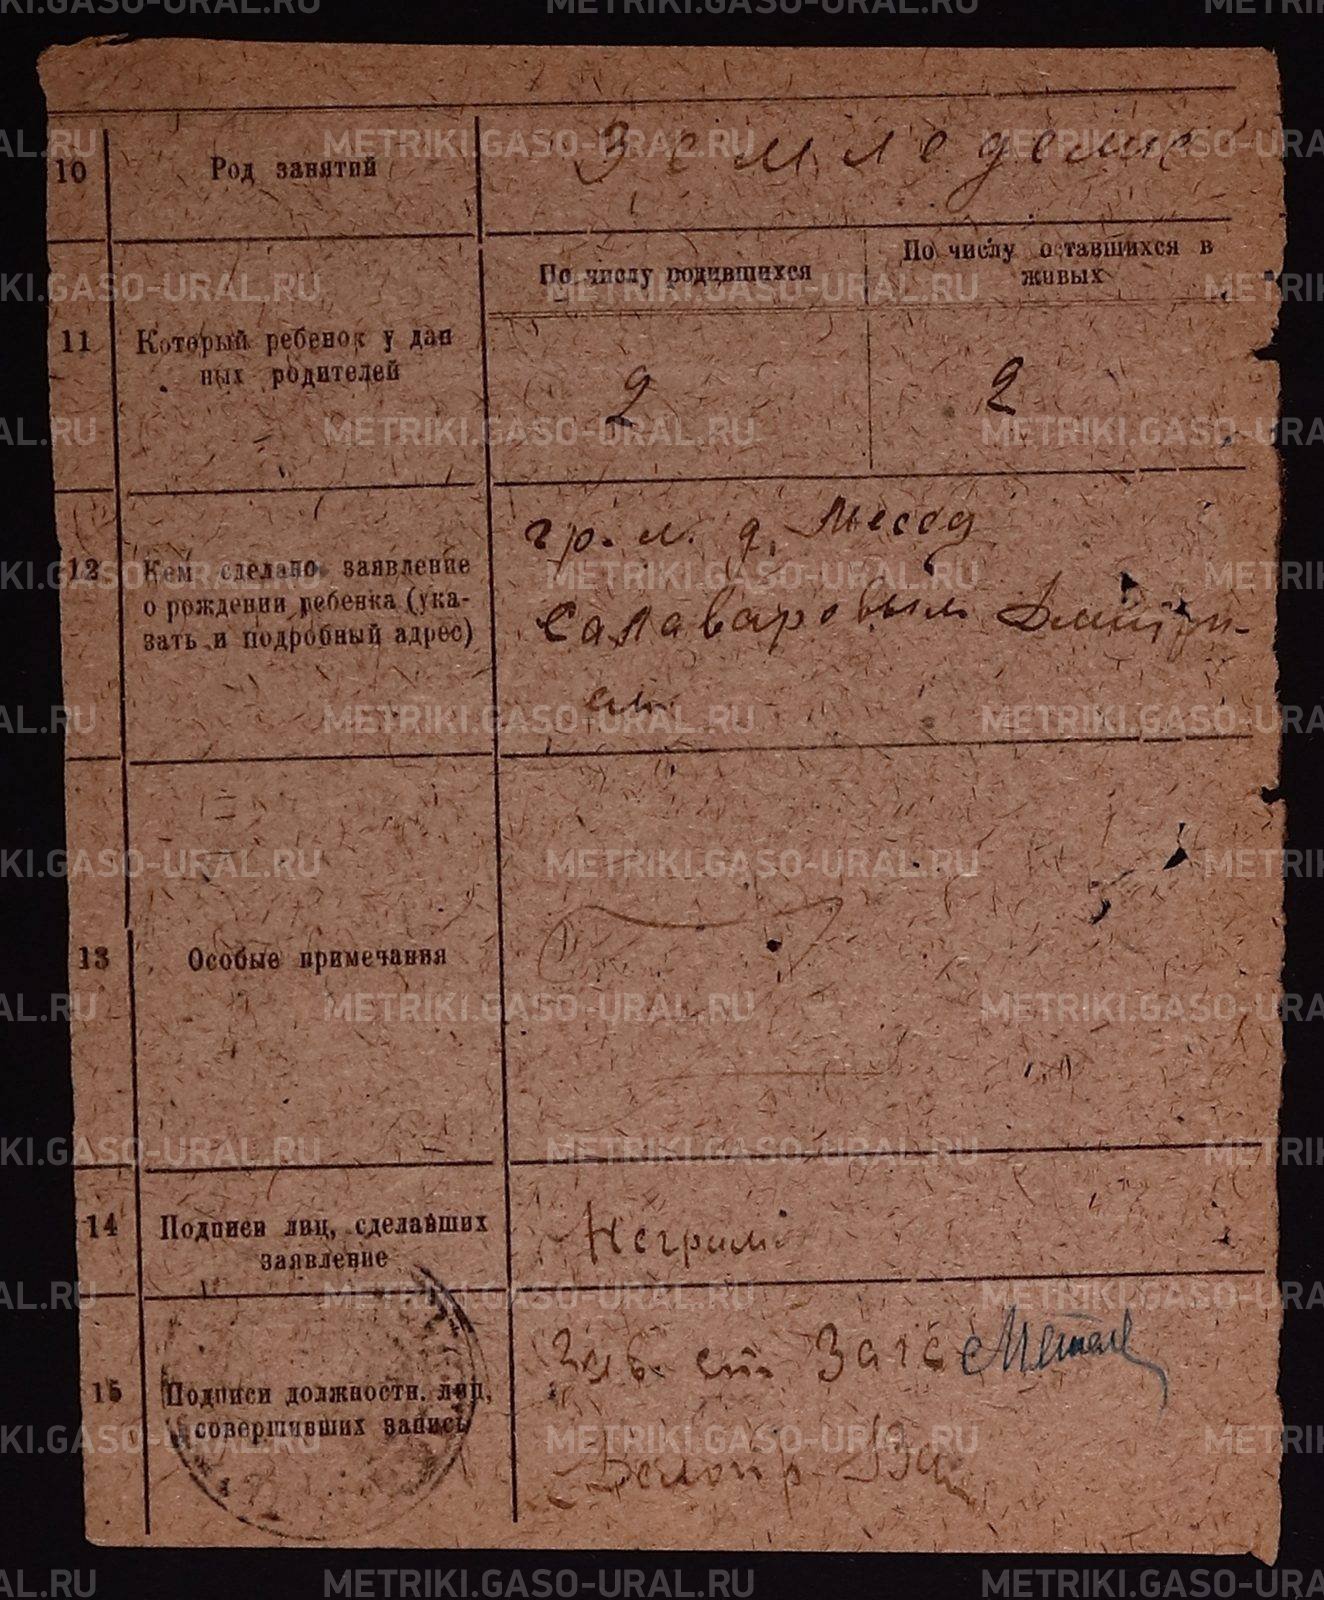 10
Род занятий
Земледелие
11
Который ребенок у дан
ных родителей
По числу родившихся
По числу оставшихся в
живых
2
2
12
Кем сделано заявление
о рождении ребенка (ука-
зать и подробный адрес)
гр. д.
Салаваровым Дмитри-
ем
13
Особые примечания
14
Подписи лиц, сделавших
заявление
Неграм
15
Подписи должностн. лиц,
совершивших запись
Зав. ст Загс
Делопр.
METRIKI.GASO-URAL.RU